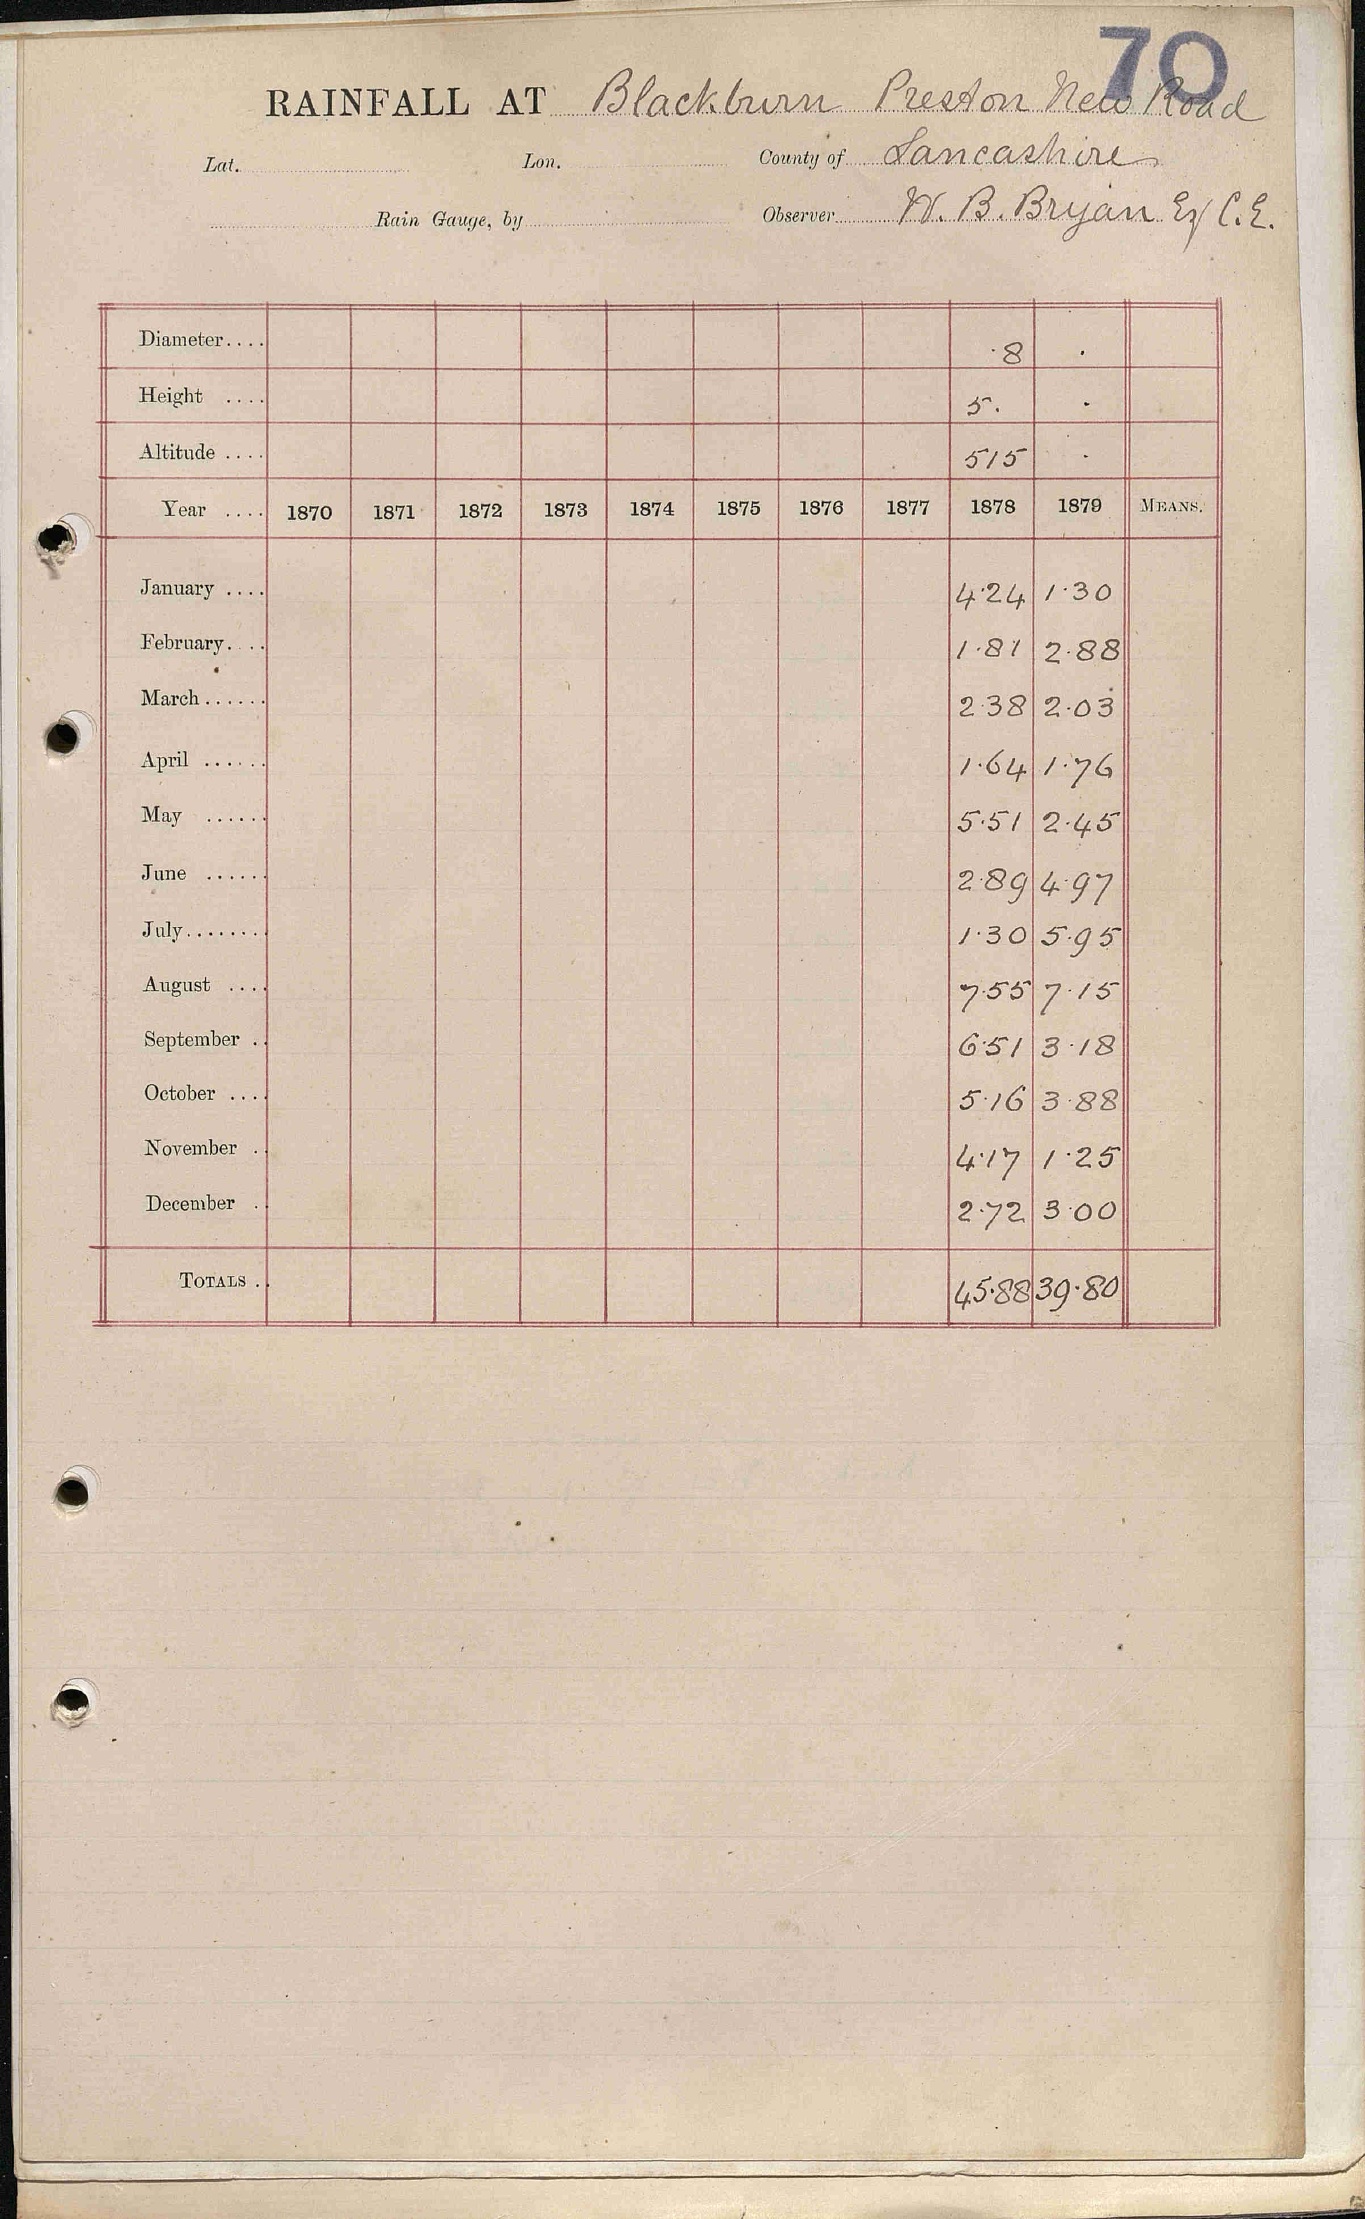 70
RAINFALL AT Blackburn Preston New Road
Lat. Lon. County of Lancashire
Rain Gauge, by Observer W. B. Bryan Esq C.E.
Diameter.... ·8 ·
Height .... 5. ·
Altitude .... 515 ·
Year .... 1870 1871 1872 1873 1874 1875 1876 1877 1878 1879 MEANS.
January .... 4·24 1·30
February.... 1·81 2·88
March...... 2·38 2·03
April ...... 1·64 1·76
May ...... 5·51 2·45
June ...... 2·89 4·97
July........ 1·30 5·95
August .... 7·55 7·15
September .. 6·51 3·18
October .... 5·16 3·88
November .. 4·17 1·25
December .. 2·72 3·00
TOTALS .. 45·88 39·80